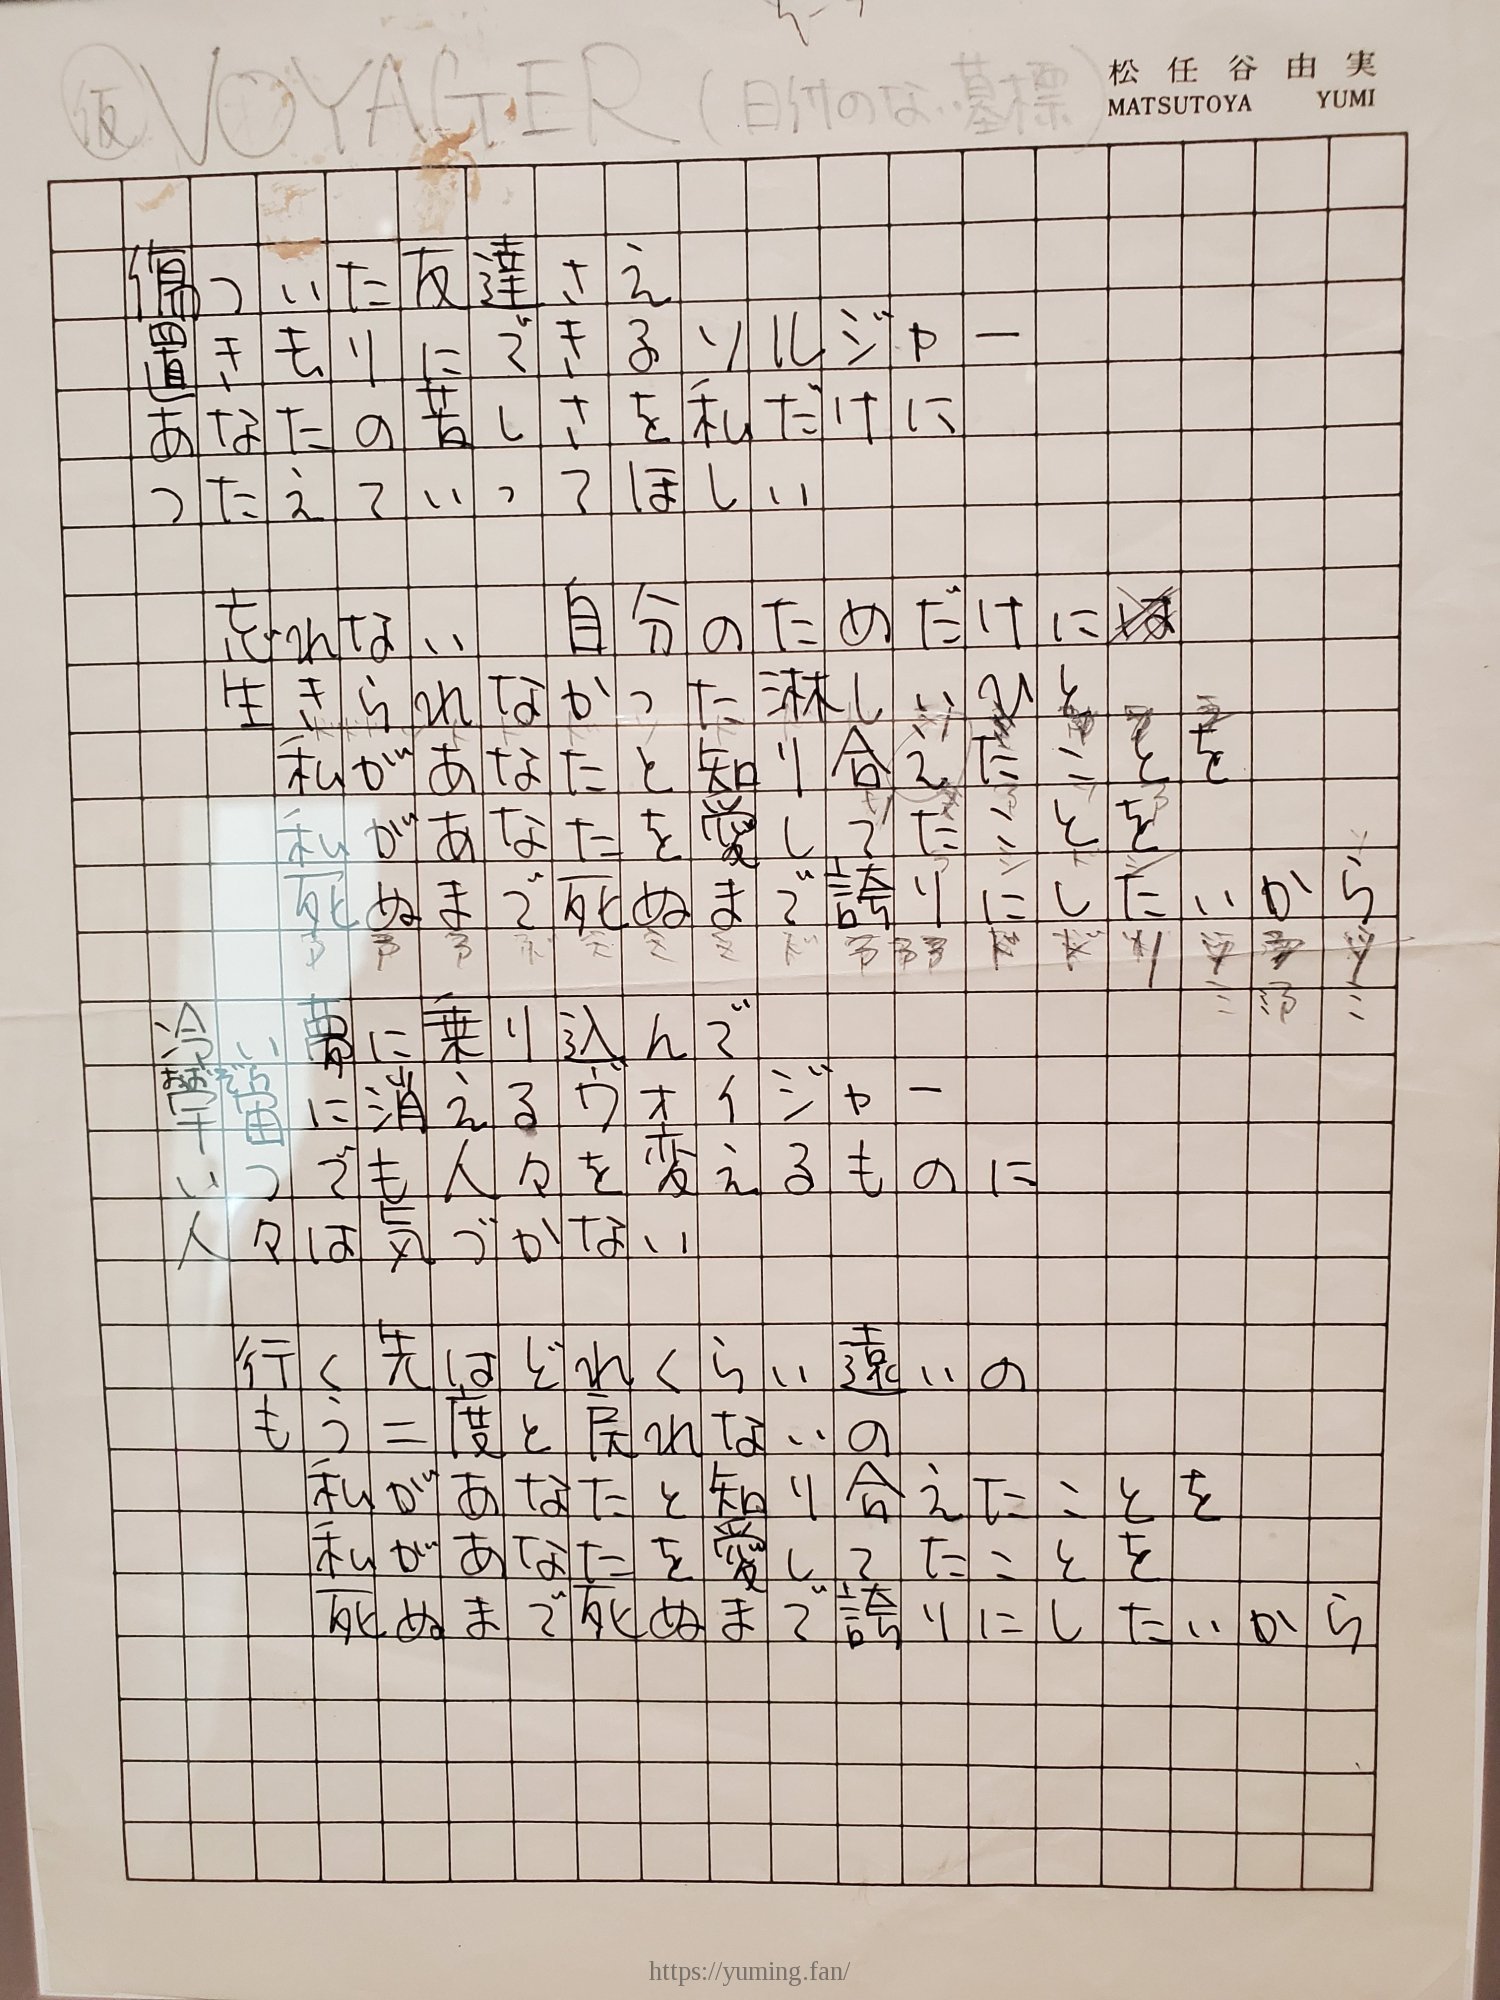 ㋕VOYAGER（日付のない墓標）
松任谷由実
MATSUTOYA YUMI
傷ついた友達さえ
置きもりにできるソルジャー
あなたの苦しさを私だけに
つたえていってほしい
忘れない 自分のためだけには
生きられなかった淋しいひと
私があなたと知り合えたことを
私があなたを愛してたことを
死ぬまで死ぬまで誇りにしたいから
冷い夢に乗り込んで
おおぞら
宇宙に消えるヴォイジャー
いつでも人々を変えるものに
人々は気づかない
行く先はどれくらい遠いの
もう二度と戻れないの
私があなたと知り合えたことを
私があなたを愛してたことを
死ぬまで死ぬまで誇りにしたいから
https://yuming.fan/